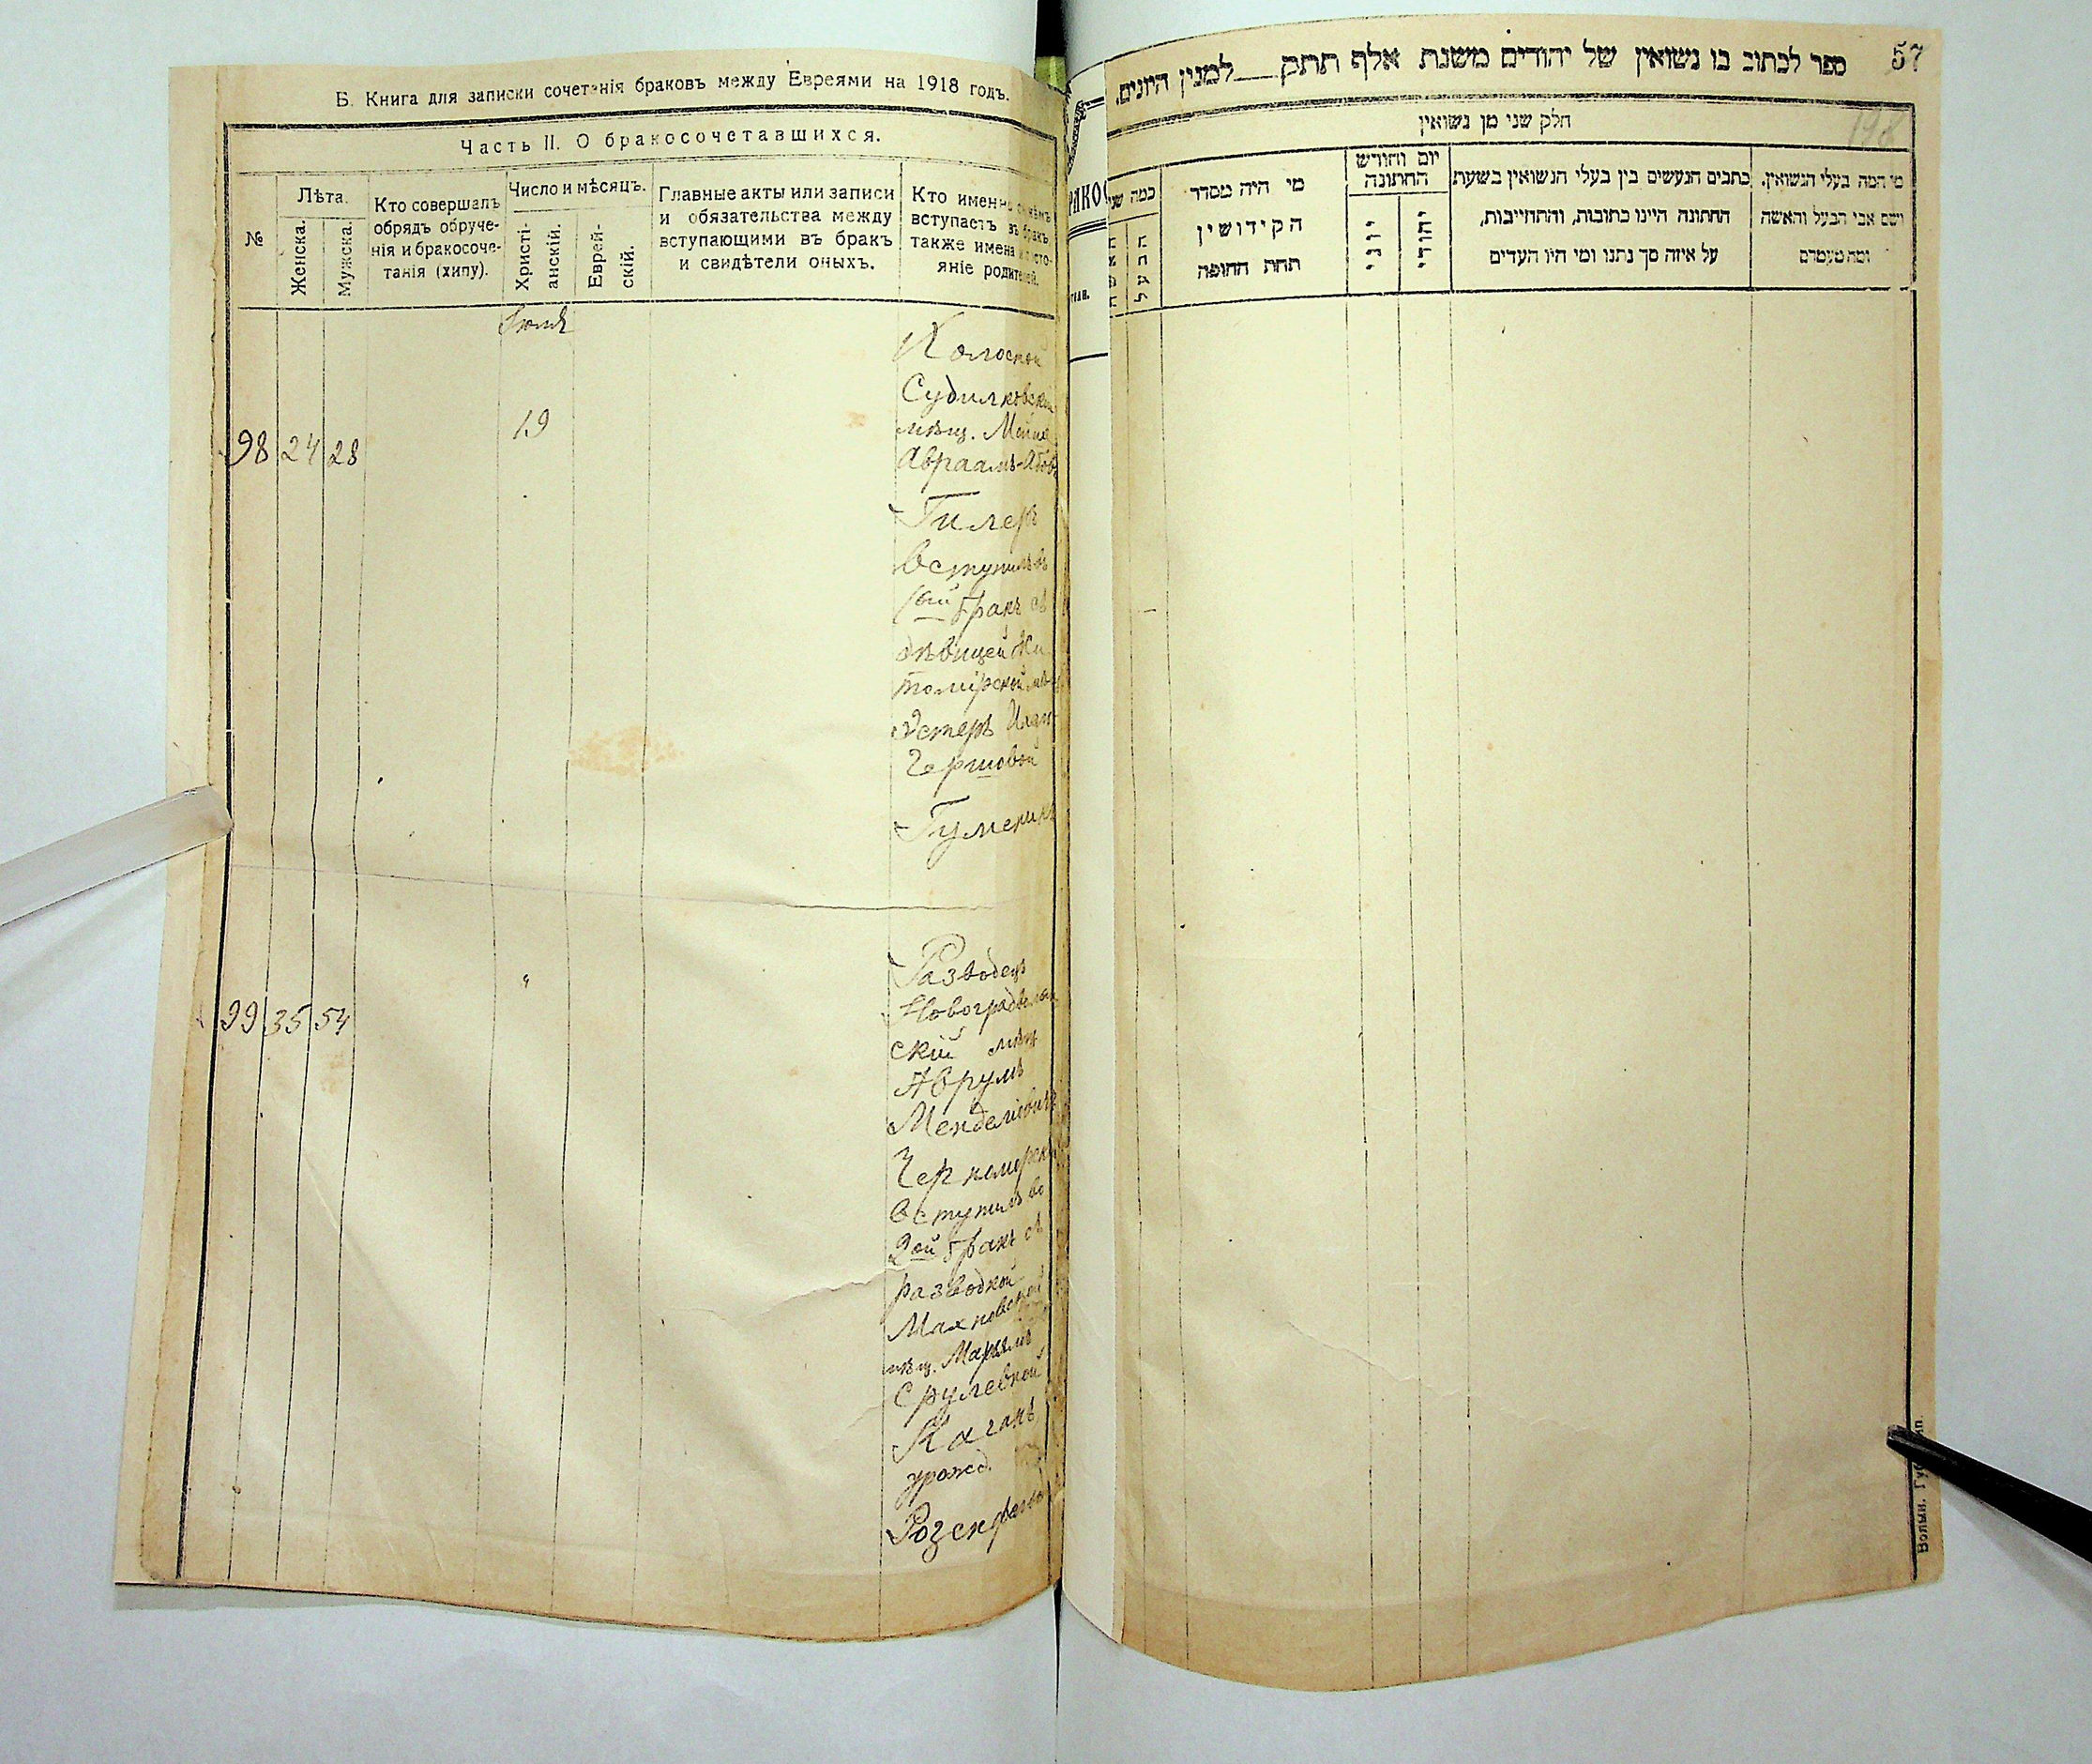 Б. Книга для записки сочетанія браковъ между Евреями на 1918 годъ.
Часть II. О бракосочетавшихся.
№
Лѣта.
Женска.
Мужска.
Кто совершалъ
обрядъ обруче-
нія и бракосоче-
танія (хипу).
Число и мѣсяцъ.
Христі-
анскій.
Еврей-
скій.
Главные акты или записи
и обязательства между
вступающими въ бракъ
и свидѣтели оныхъ.
Кто именно
вступаетъ въ бракъ,
также имена
яніе родителей.
98 24 28
19
Холостой
Судилковскій
мѣщ.
Авраамъ-Абовъ
Гилеръ
вступилъ въ
1ый бракъ съ
дѣвицей Жи
томірской
Эстеръ
Гершовой
Гуменикъ
99 35 54
"
Разводецъ
Новоградволын
скій мѣщ
Аврумъ
Менделіовичъ
Черноморскій
вступилъ во
2ой бракъ съ
разводкой
Махновской
мѣщ. Марьямъ
Срулевной
Каганъ
урожд.
Розенфельдъ
57
198
ספר לכתוב בו נשואין של יהודים משנת אלף תתק למנין היונים.
חלק שני מן נשואין
מי המה בעלי הנשואין,
ושם אבי הבעל והאשה
ומה מעמדם
כתבים הנעשים בין בעלי הנשואין בשעת
החתונה היינו כתובות, והתחייבות,
על איזה סך נתנו ומי היו העדים
יום וחודש
החתונה
יהודי
יוני
מי היה מסדר
הקידושין
תחת החופה
כמה שני
הבעל
האשה
Волын. Губ. Тип.